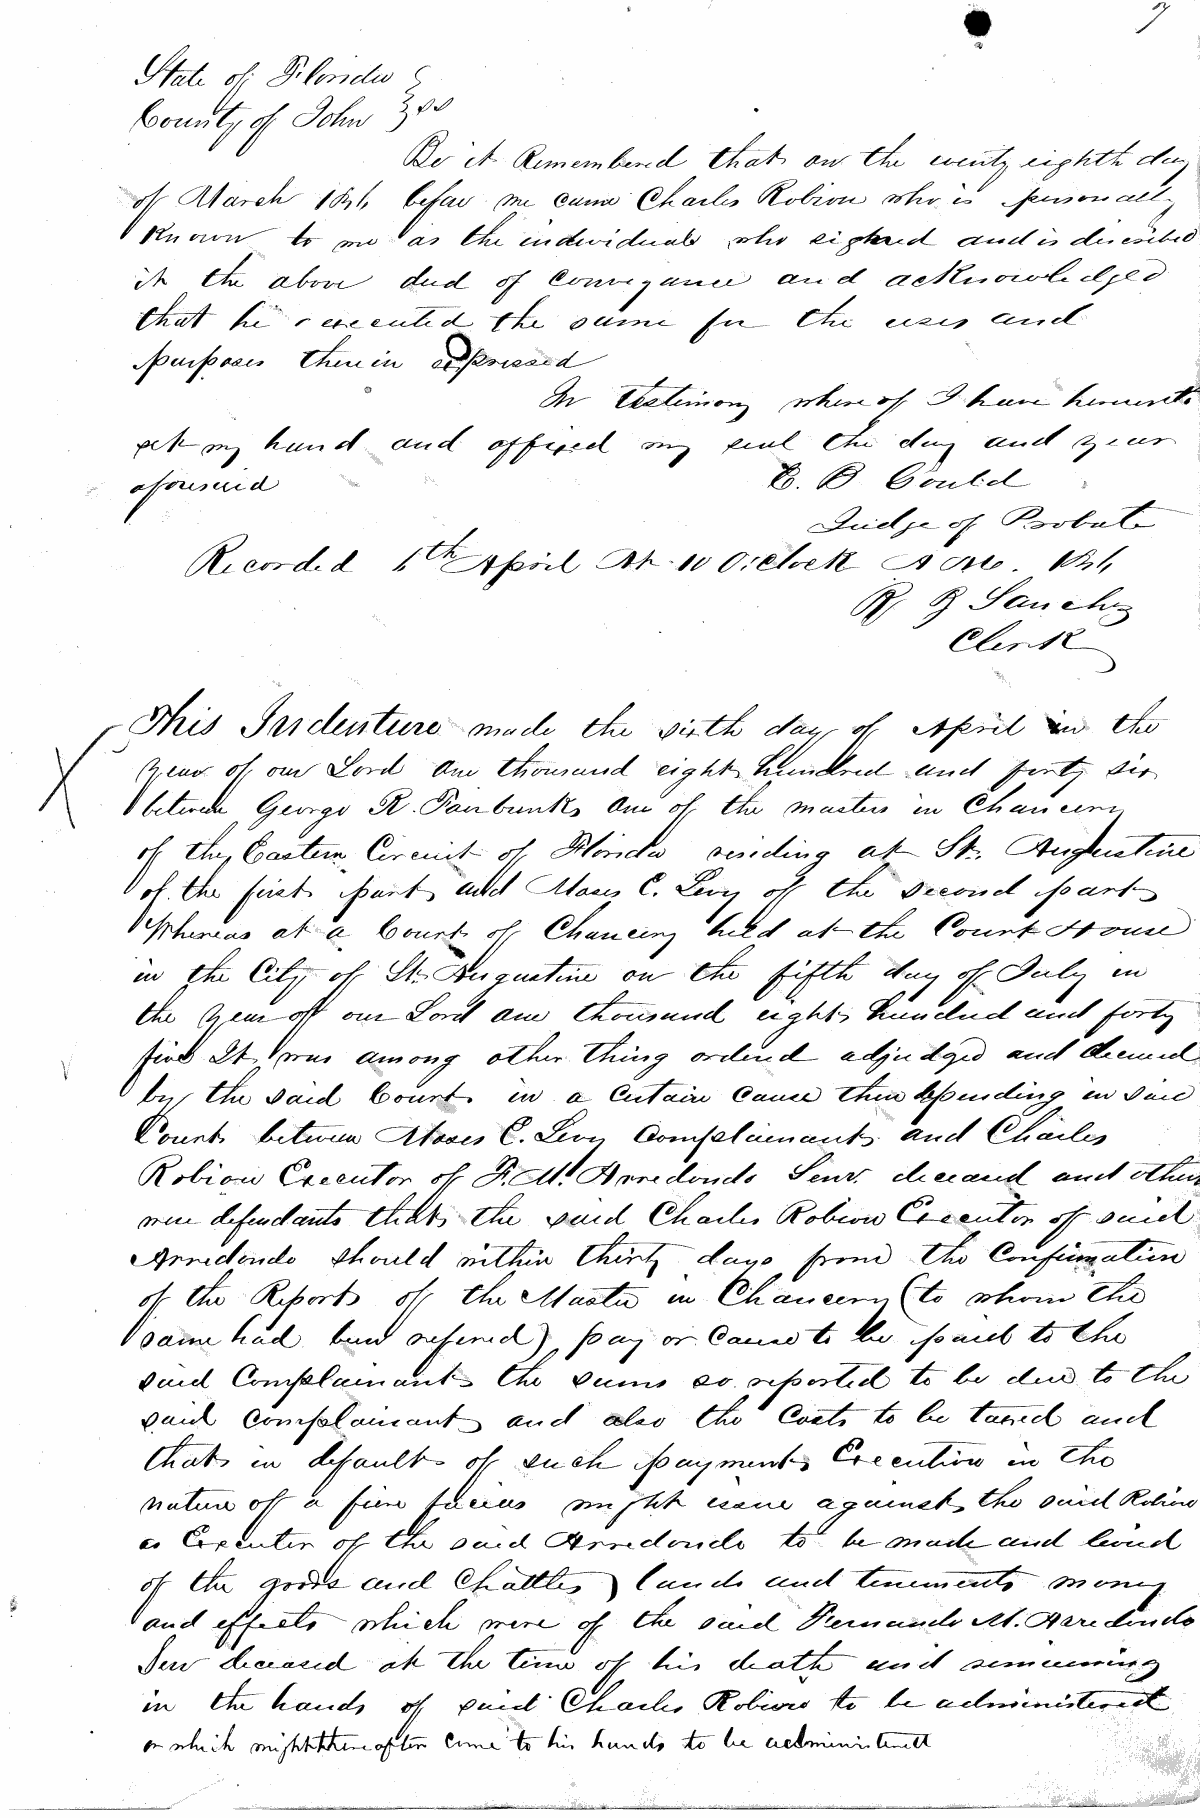 7
State of Florida
County of John } ss
Be it Remembered that on the twenty eighth day
of March 1846 before me came Charles Robion who is personally
Known to me as the individual who signed and is described
in the above deed of conveyance and acknowledged
that he executed the same for the uses and
purposes therein expressed
In testimony where of I have hereunto
set my hand and affixed my seal the day and year
aforesaid E. B Gould
Judge of Probate
Recorded 6th April At 10 O'clock A M. 1846
R B Sanchez
Clerk
This Indenture made the sixth day of April in the
year of our Lord One thousand eight hundred and forty six
between George R. Fairbanks One of the masters in Chancery
of the Eastern Circuit of Florida residing at St. Augustine
of the first part and Moses E. Levy of the second part
Whereas at a Court of Chancery held at the Court House
in the City of St. Augustine on the fifth day of July in
the year of our Lord one thousand eight hundred and forty
five It was among other thing ordered adjudged and decreed
by the said Court in a certain cause then depending in said
Court between Moses E. Levy Complainant and Charles
Robion Executor of F. M. Arredondo Senr. deceased and others
were defendants that the said Charles Robion Executor of said
Arredondo should within thirty days from the Confirmation
of the Report of the Master in Chancery (to whom the
same had been refered) pay or cause to be paid to the
said Complainant the sums so reported to be due to the
said complainant and also the Costs to be taxed and
that in default of such payment Execution in the
nature of a fiere facias might issue against the said Robion
as Executor of the said Arredondo to be made and levied
of the goods and Chattles lands and tenements money
and effects which were of the said Fernando M. Arredondo
Senr deceased at the time of his death and remaining
in the hands of said Charles Robion to be administered
or which might thereafter come to his hands to be administered